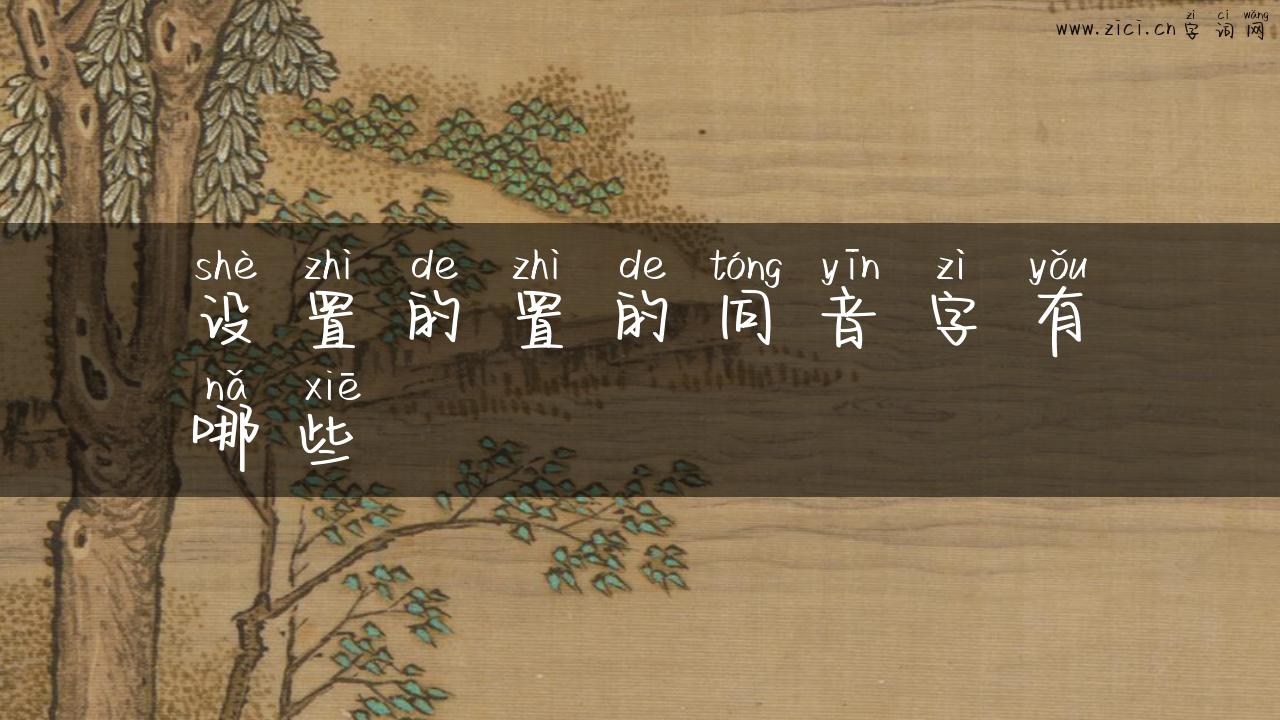 zì cí wǎng
www.zici.cn 字词网
shè zhì de zhì de tóng yīn zì yǒu
设置的置的同音字有
nǎ xiē
哪些